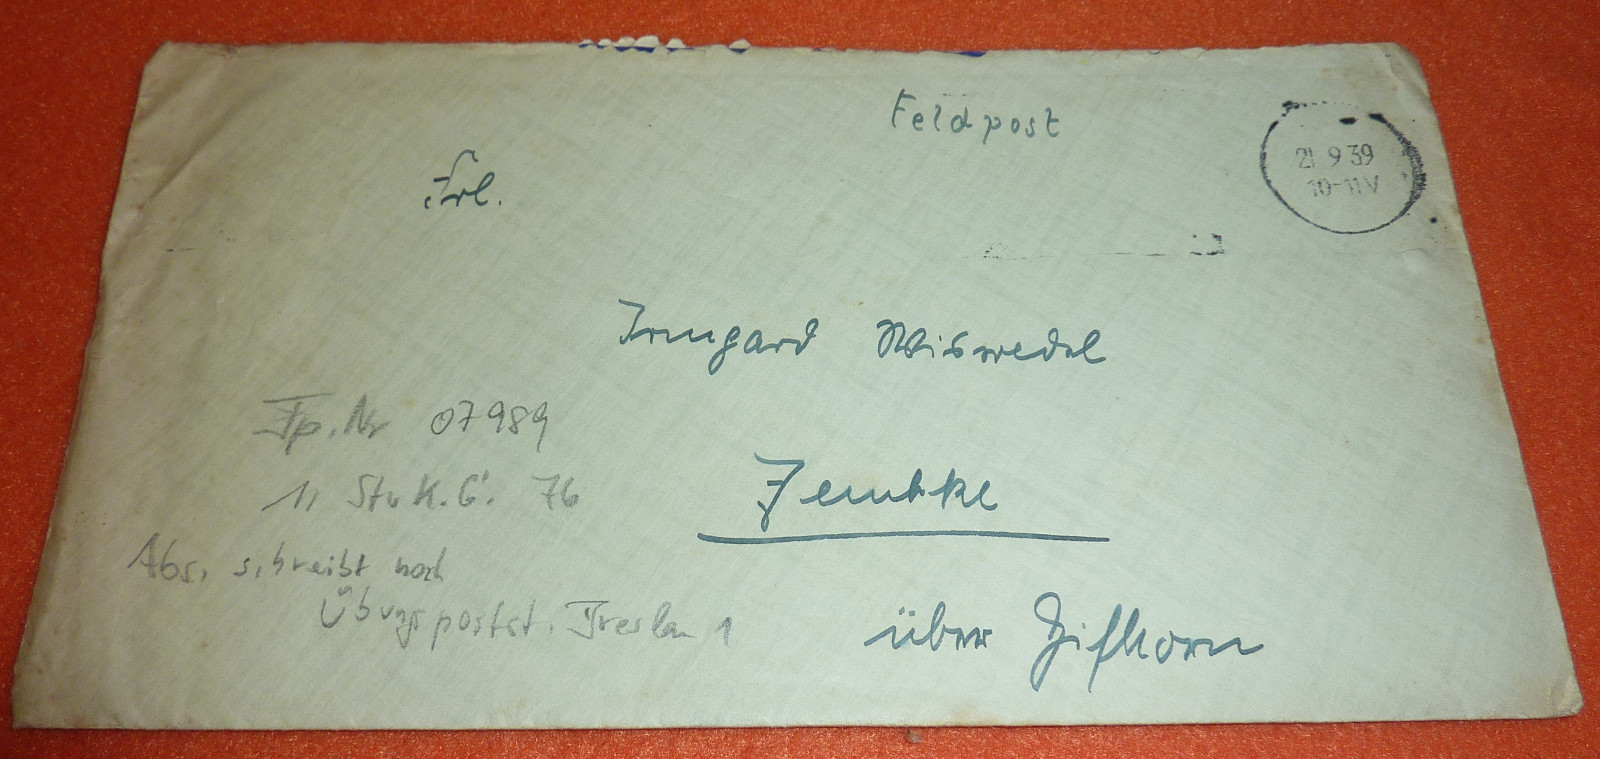 Feldpost
21 9 39
10-11 V
Frl.
Irmgard Wiswedel
Fp. Nr 07989
1/ StuK.G. 76
Jembke
Abs. schreibt noch
Übungspostst. Breslau 1
über Gifhorn